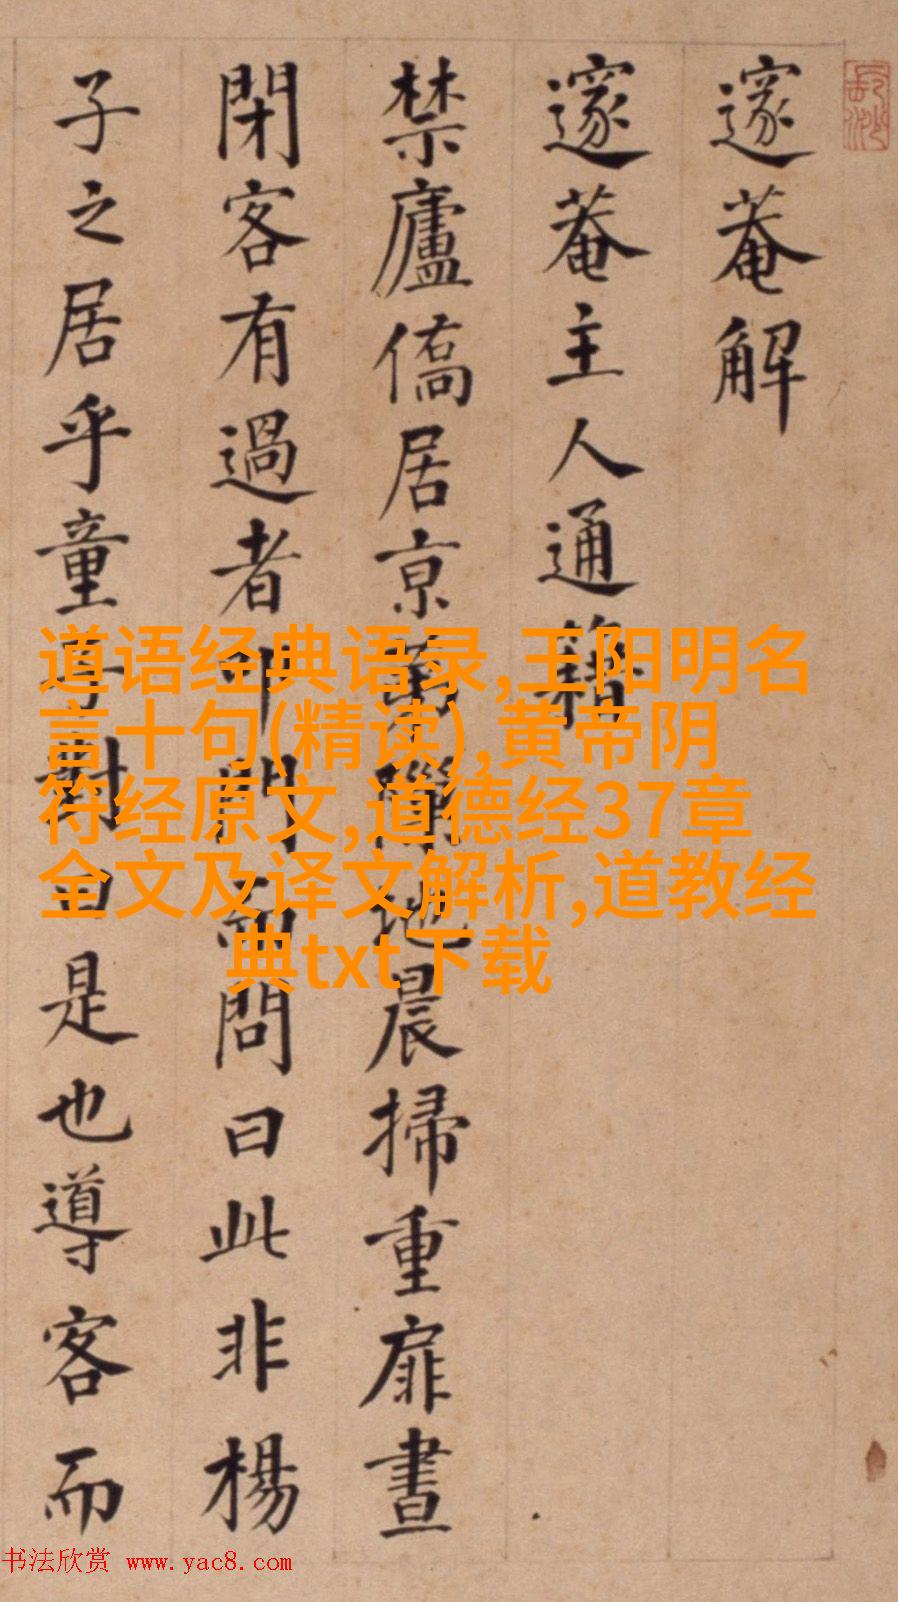 邃菴解
邃菴主人通籍
禁廬僑居京地晨掃重扉晝
閉客有過者叩門而問曰此非楊
子之居乎童子對曰是也導客而
道语经典语录,王阳明名
言十句(精读),黄帝阴
符经原文,道德经37章
全文及译文解析,道教经
典txt下载
书法欣赏 www.yac8.com